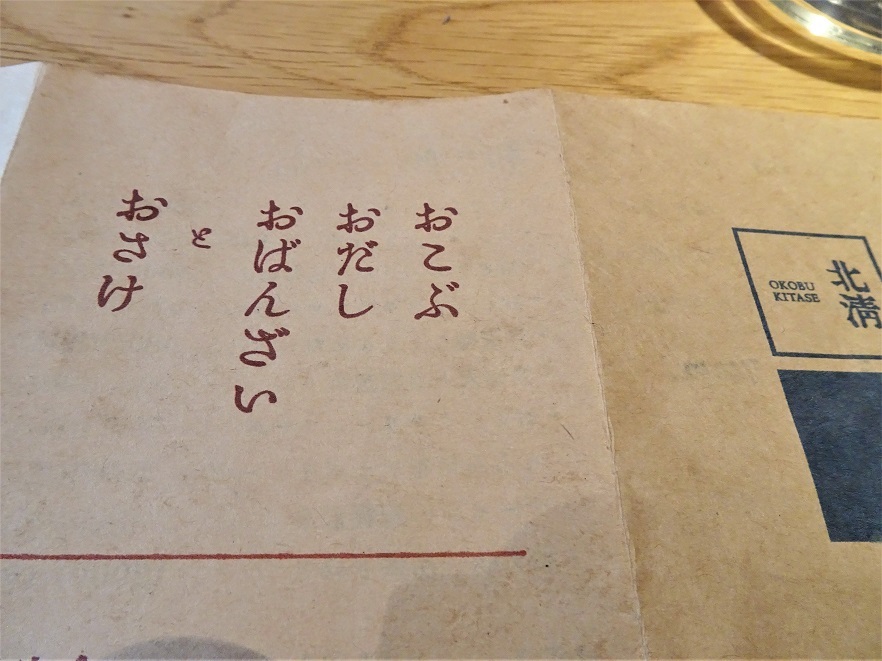 おこぶ
おだし
おばんざい
と
おさけ
北清
OKOBU
KITASE